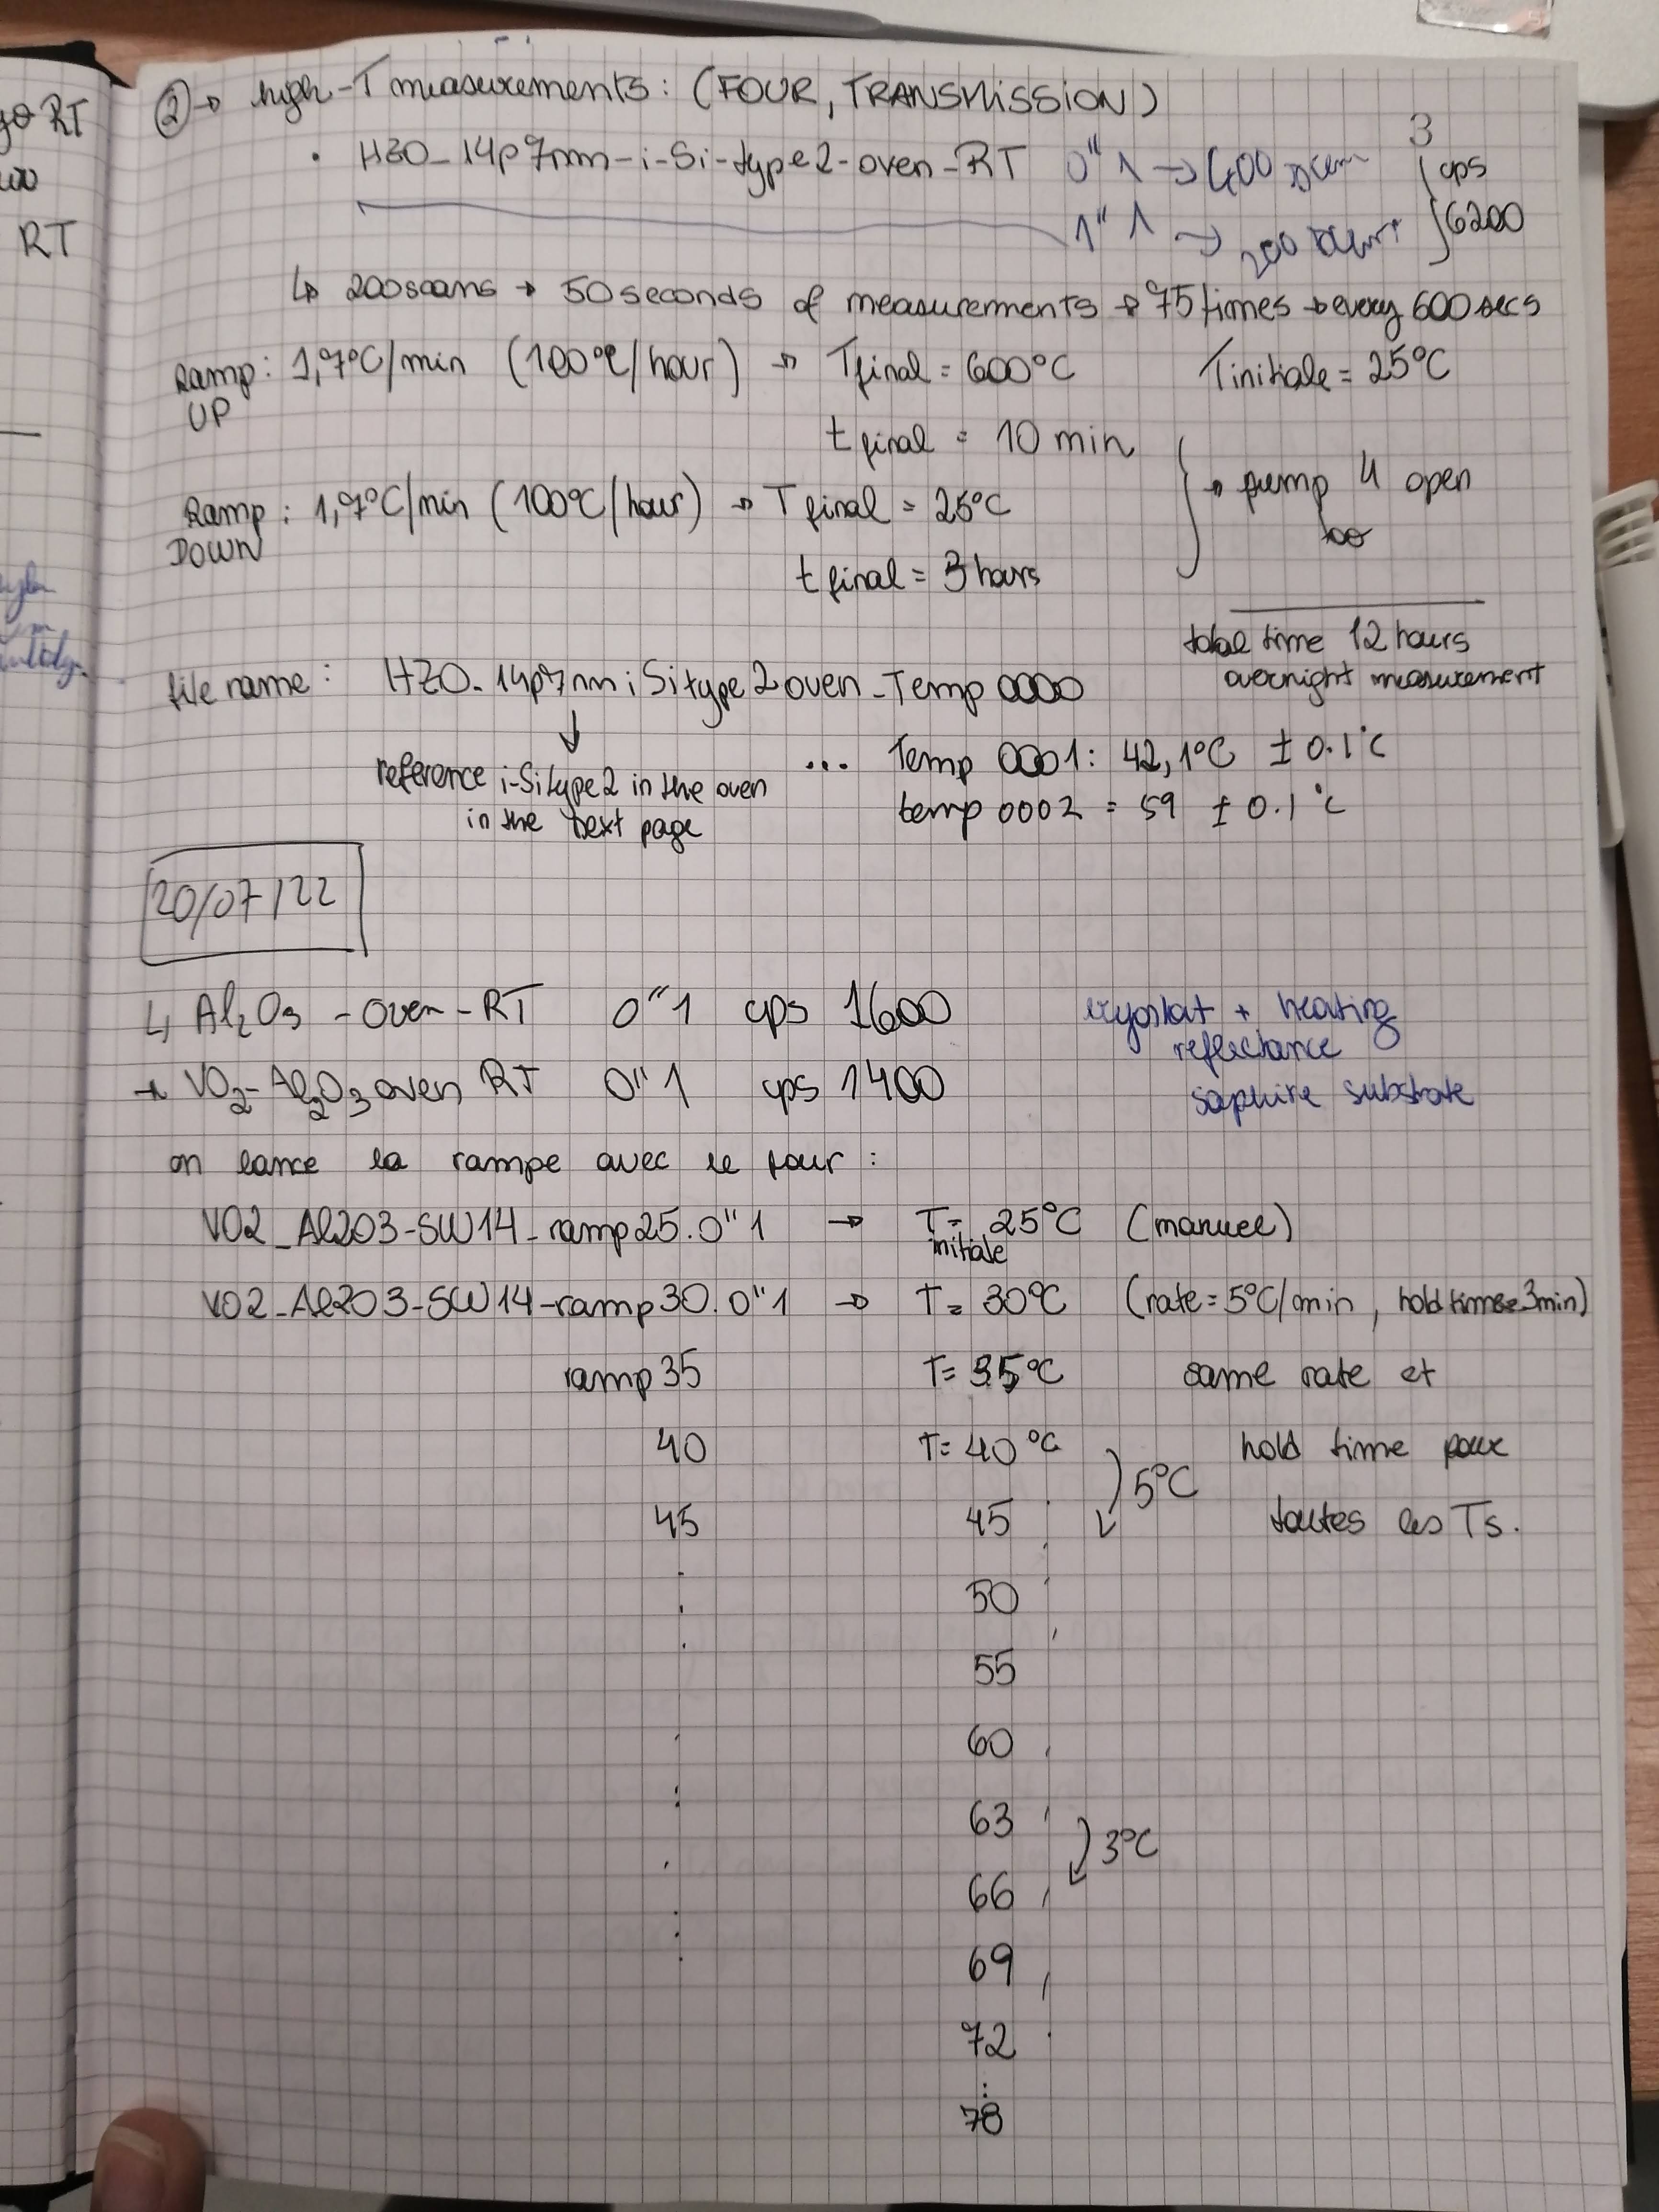 go RT
RT
② → high-T measurements: (FOUR, TRANSMISSION)
3
• HZO_14p7nm-i-Si-type2-oven-RT 0"1 → 400 scan
cps
1"1 → 200 scans
6200
↳ 200 scans → 50 seconds of measurements → 75 times → every 600 secs
Ramp UP: 1,7°C/min (100°C/hour) → Tfinal = 600°C Tinitiale = 25°C
t final = 10 min
→ pump 4 open
Ramp DOWN: 1,7°C/min (100°C/hour) → T final = 25°C
t final = 3 hours
total time 12 hours
overnight measurement
file name: HZO_14p7nm i Si type 2 oven_Temp 0000
↓
reference i-Si type 2 in the oven
in the next page
... Temp 0001: 42,1°C ± 0.1°C
temp 0002 = 59 ± 0.1°C
20/07/22
↳ Al2O3 - Oven - RT 0"1 cps 1600
cryostat + heating
reflectance
→ VO2-Al2O3 oven RT 0"1 cps 1400
saphire substrate
on lance la rampe avec le four :
VO2_Al2O3-SW14_ramp25.0"1 → T initiale = 25°C (manuel)
VO2_Al2O3-SW14-ramp30.0"1 → T= 30°C (rate=5°C/min, hold time=3min)
ramp 35 T= 35°C same rate et
40 T= 40°C hold time pour
5°C
45 45 toutes les Ts.
50
55
60
63
3°C
66
69
72
78